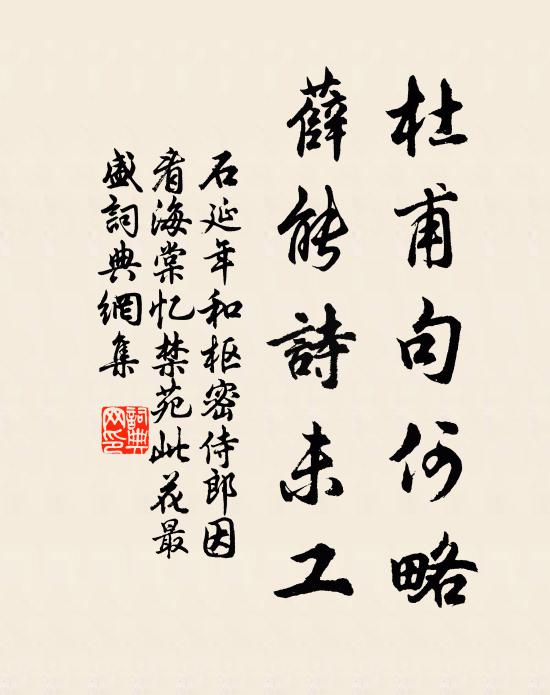 杜甫句何略
薛能詩未工
石延年和枢密侍郎因
看海棠忆禁苑此花最
盛詞典網集
詞典
网印